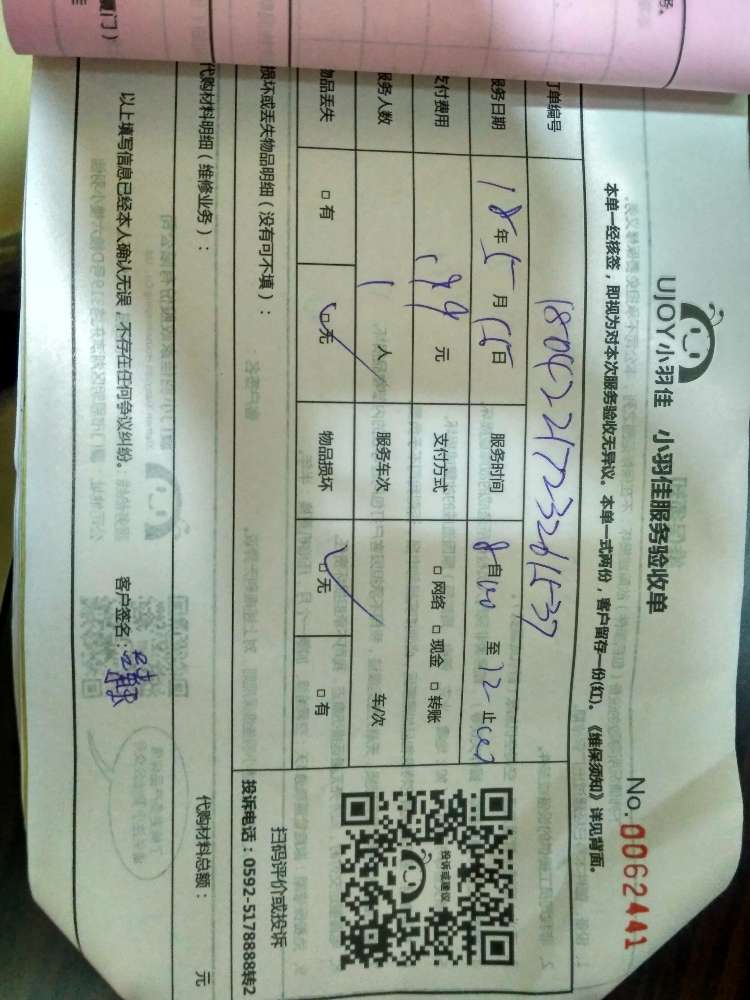 UJOY小羽佳 小羽佳服务验收单
No.0062441
本单一经核签，即视为对本次服务验收无异议。本单一式两份，客户留存一份(红)。《维保须知》详见背面。
订单编号
服务日期 18年5月 日 服务时间 8自00至12止00
支付费用 199元 支付方式 □网络 □现金 □转账
服务人数 1人 服务车次 车/次
物品丢失 □有 □无 物品损坏 □无 □有
投诉或建议
扫码评价或投诉
投诉电话：0592-5178888转2
损坏或丢失物品明细（没有可不填）：
代购材料明细（维修业务）：
代购材料总额： 元
以上填写信息已经本人确认无误，不存在任何争议纠纷。 客户签名：
厦门）